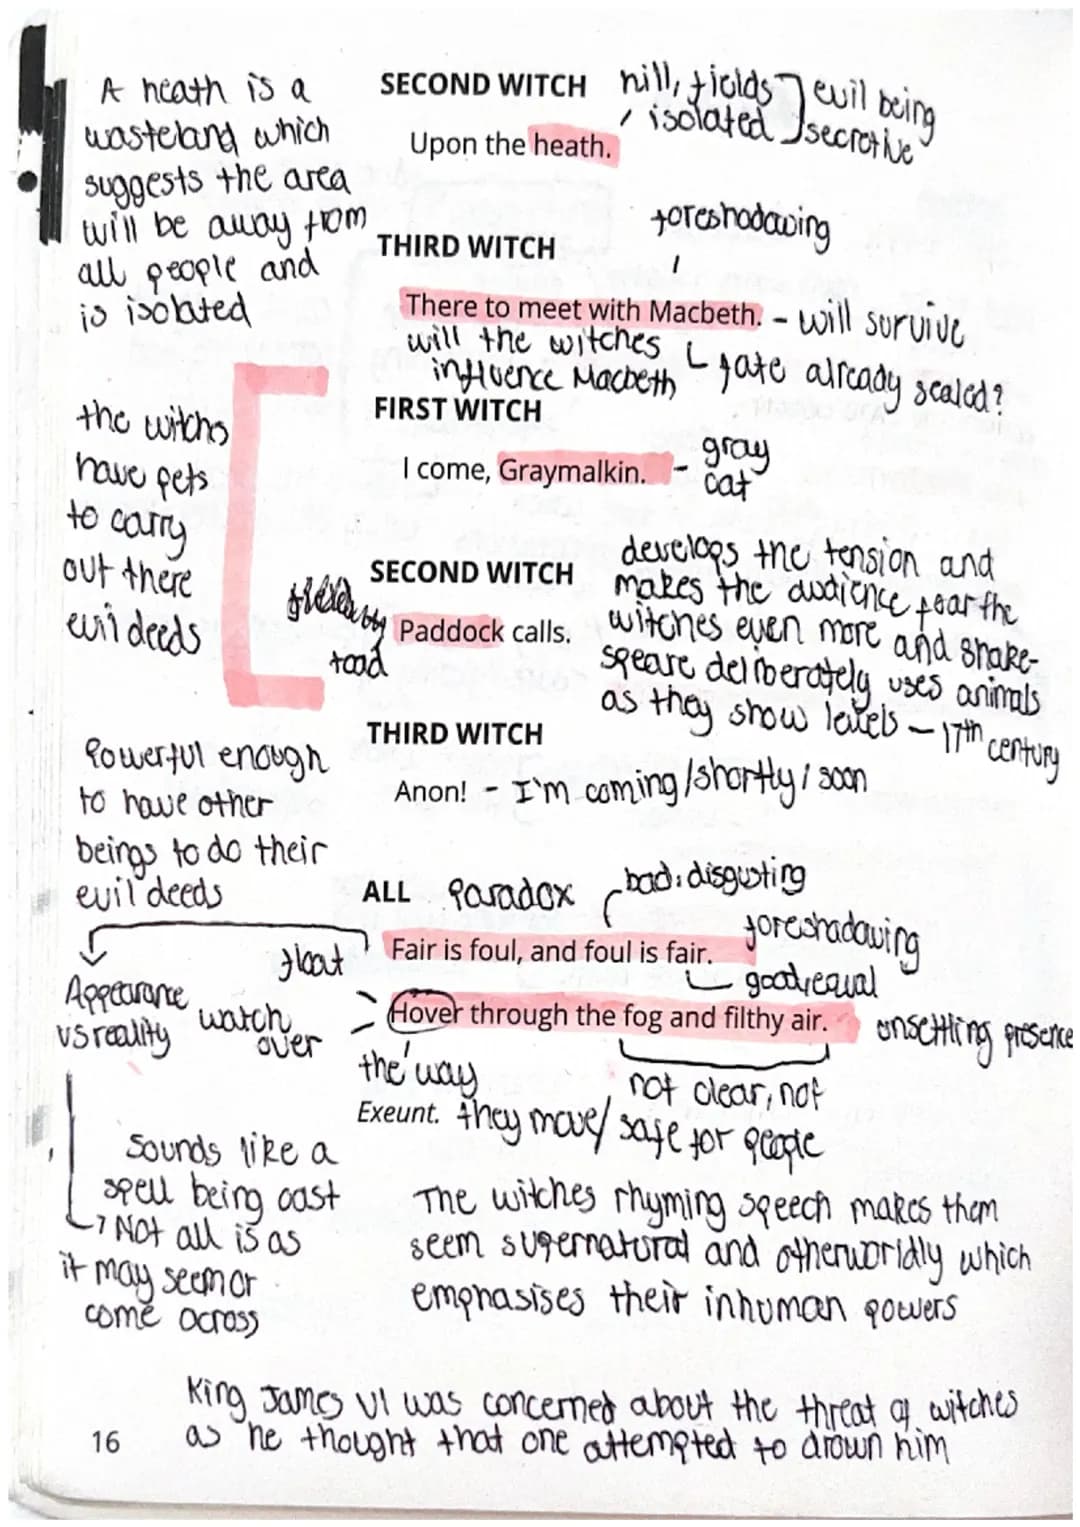 A heath is a
wasteland which
suggests the area
will be away from
all people and
is isolated
SECOND WITCH
hill, fields
/ isolated
evil being
secretive
Upon the heath.
THIRD WITCH
foreshadowing
There to meet with Macbeth. - will survive
will the witches
influence Macbeth
fate already sealed?
FIRST WITCH
I come, Graymalkin. - gray
cat
the witchs
have pets
to carry
out there
evil deeds
SECOND WITCH
Paddock calls.
toad
develops the tension and
makes the audience fear the
witches even more and shake-
speare deliberately uses animals
as they show - 17th century
THIRD WITCH
Anon! - I'm coming / shortly / soon
Powerful enough
to have other
beings to do their
evil deeds
ALL Paradox
bad, disgusting
Fair is foul, and foul is fair.
foreshadowing
good, equal
Appearance
vs reality
float
watch
over
Hover through the fog and filthy air.
unsettling presence
the way
they move/
not clear, not
safe for people
Exeunt.
Sounds like a
spell being cast
Not all is as
it may seem or
come across
The witches rhyming speech makes them
seem supernatural and otherworldly which
emphasises their inhuman powers
King James VI was concerned about the threat of witches
as he thought that one attempted to drown him
16